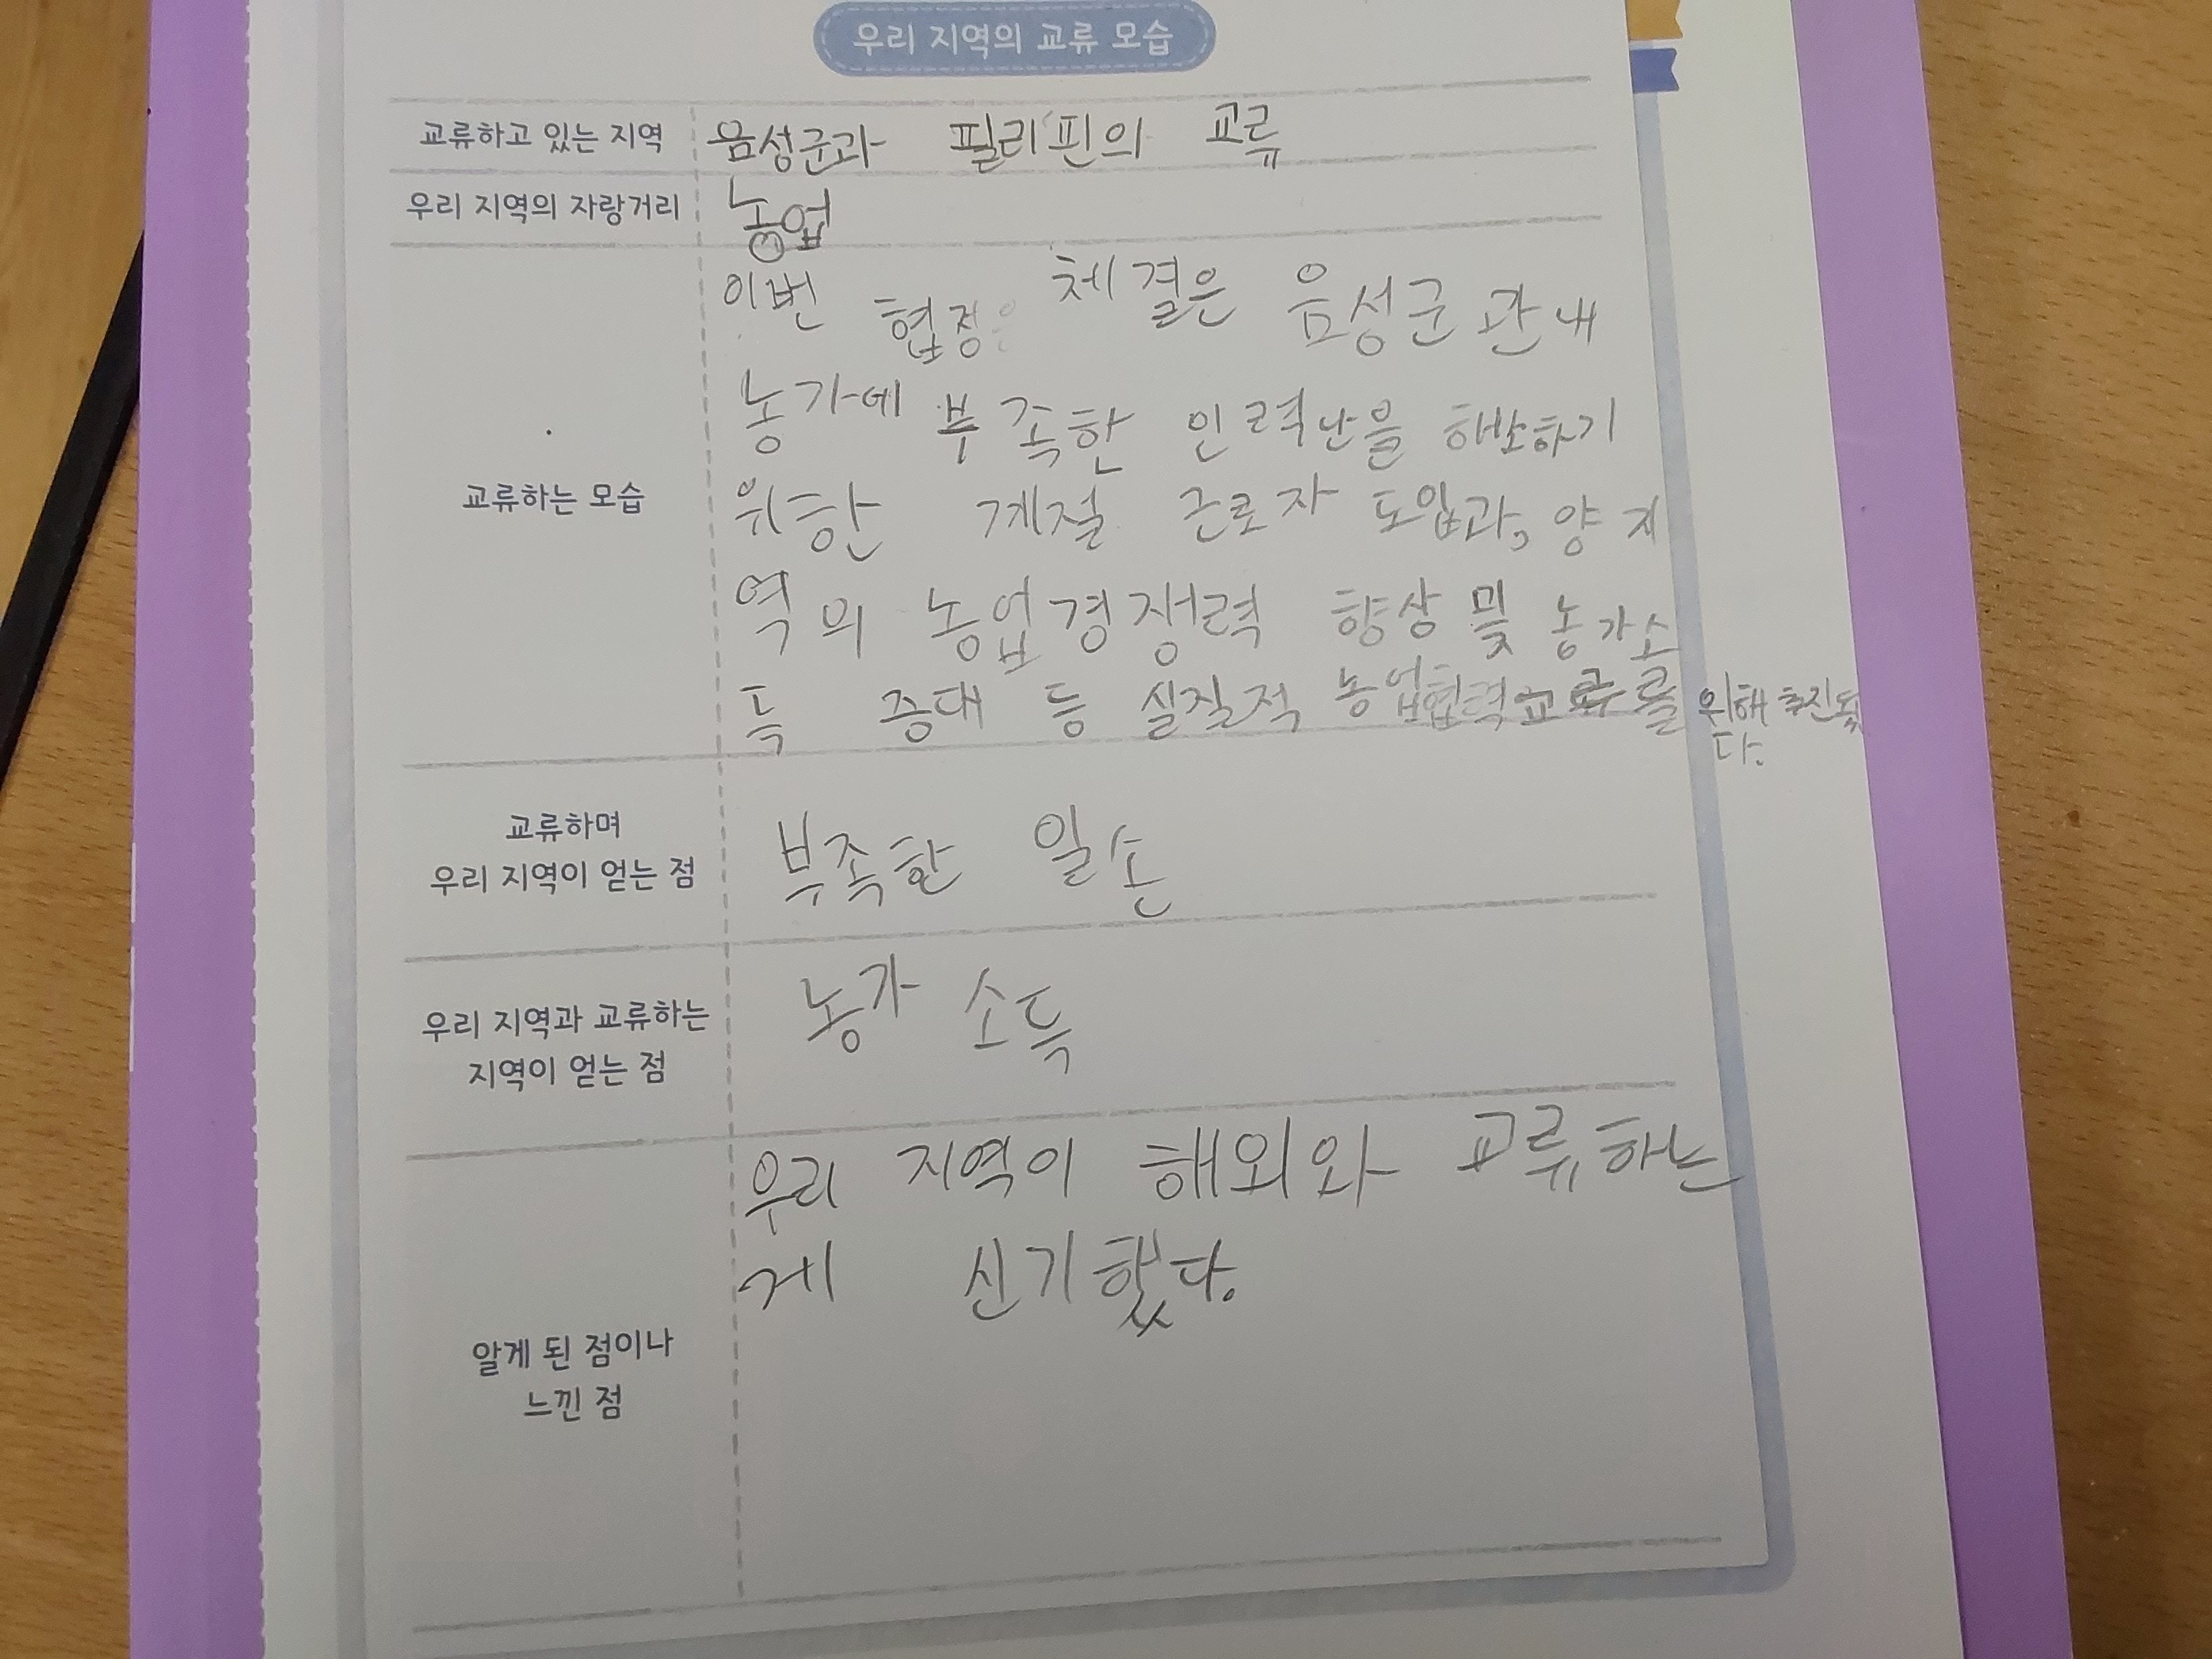 우리 지역의 교류 모습
교류하고 있는 지역
음성군과 필리핀의 교류
우리 지역의 자랑거리
농업
교류하는 모습
이번 협정 체결은 음성군 관내
농가에 부족한 인력난을 해소하기
위한 계절 근로자 도입과, 양 지
역의 농업경쟁력 향상 및 농가소
득 증대 등 실질적 농업협력교류를 위해 추진됬
다.
교류하며
우리 지역이 얻는 점
부족한 일손
우리 지역과 교류하는
지역이 얻는 점
농가 소득
알게 된 점이나
느낀 점
우리 지역이 해외와 교류하는
게 신기했다.